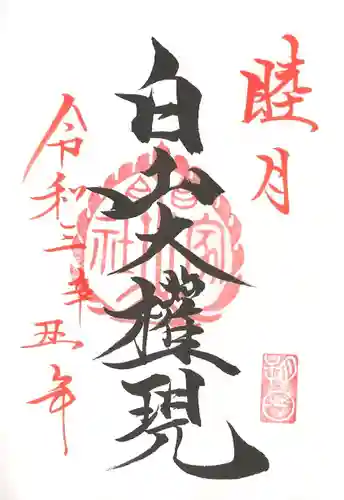 睦月
白山大權現
令和三辛丑年